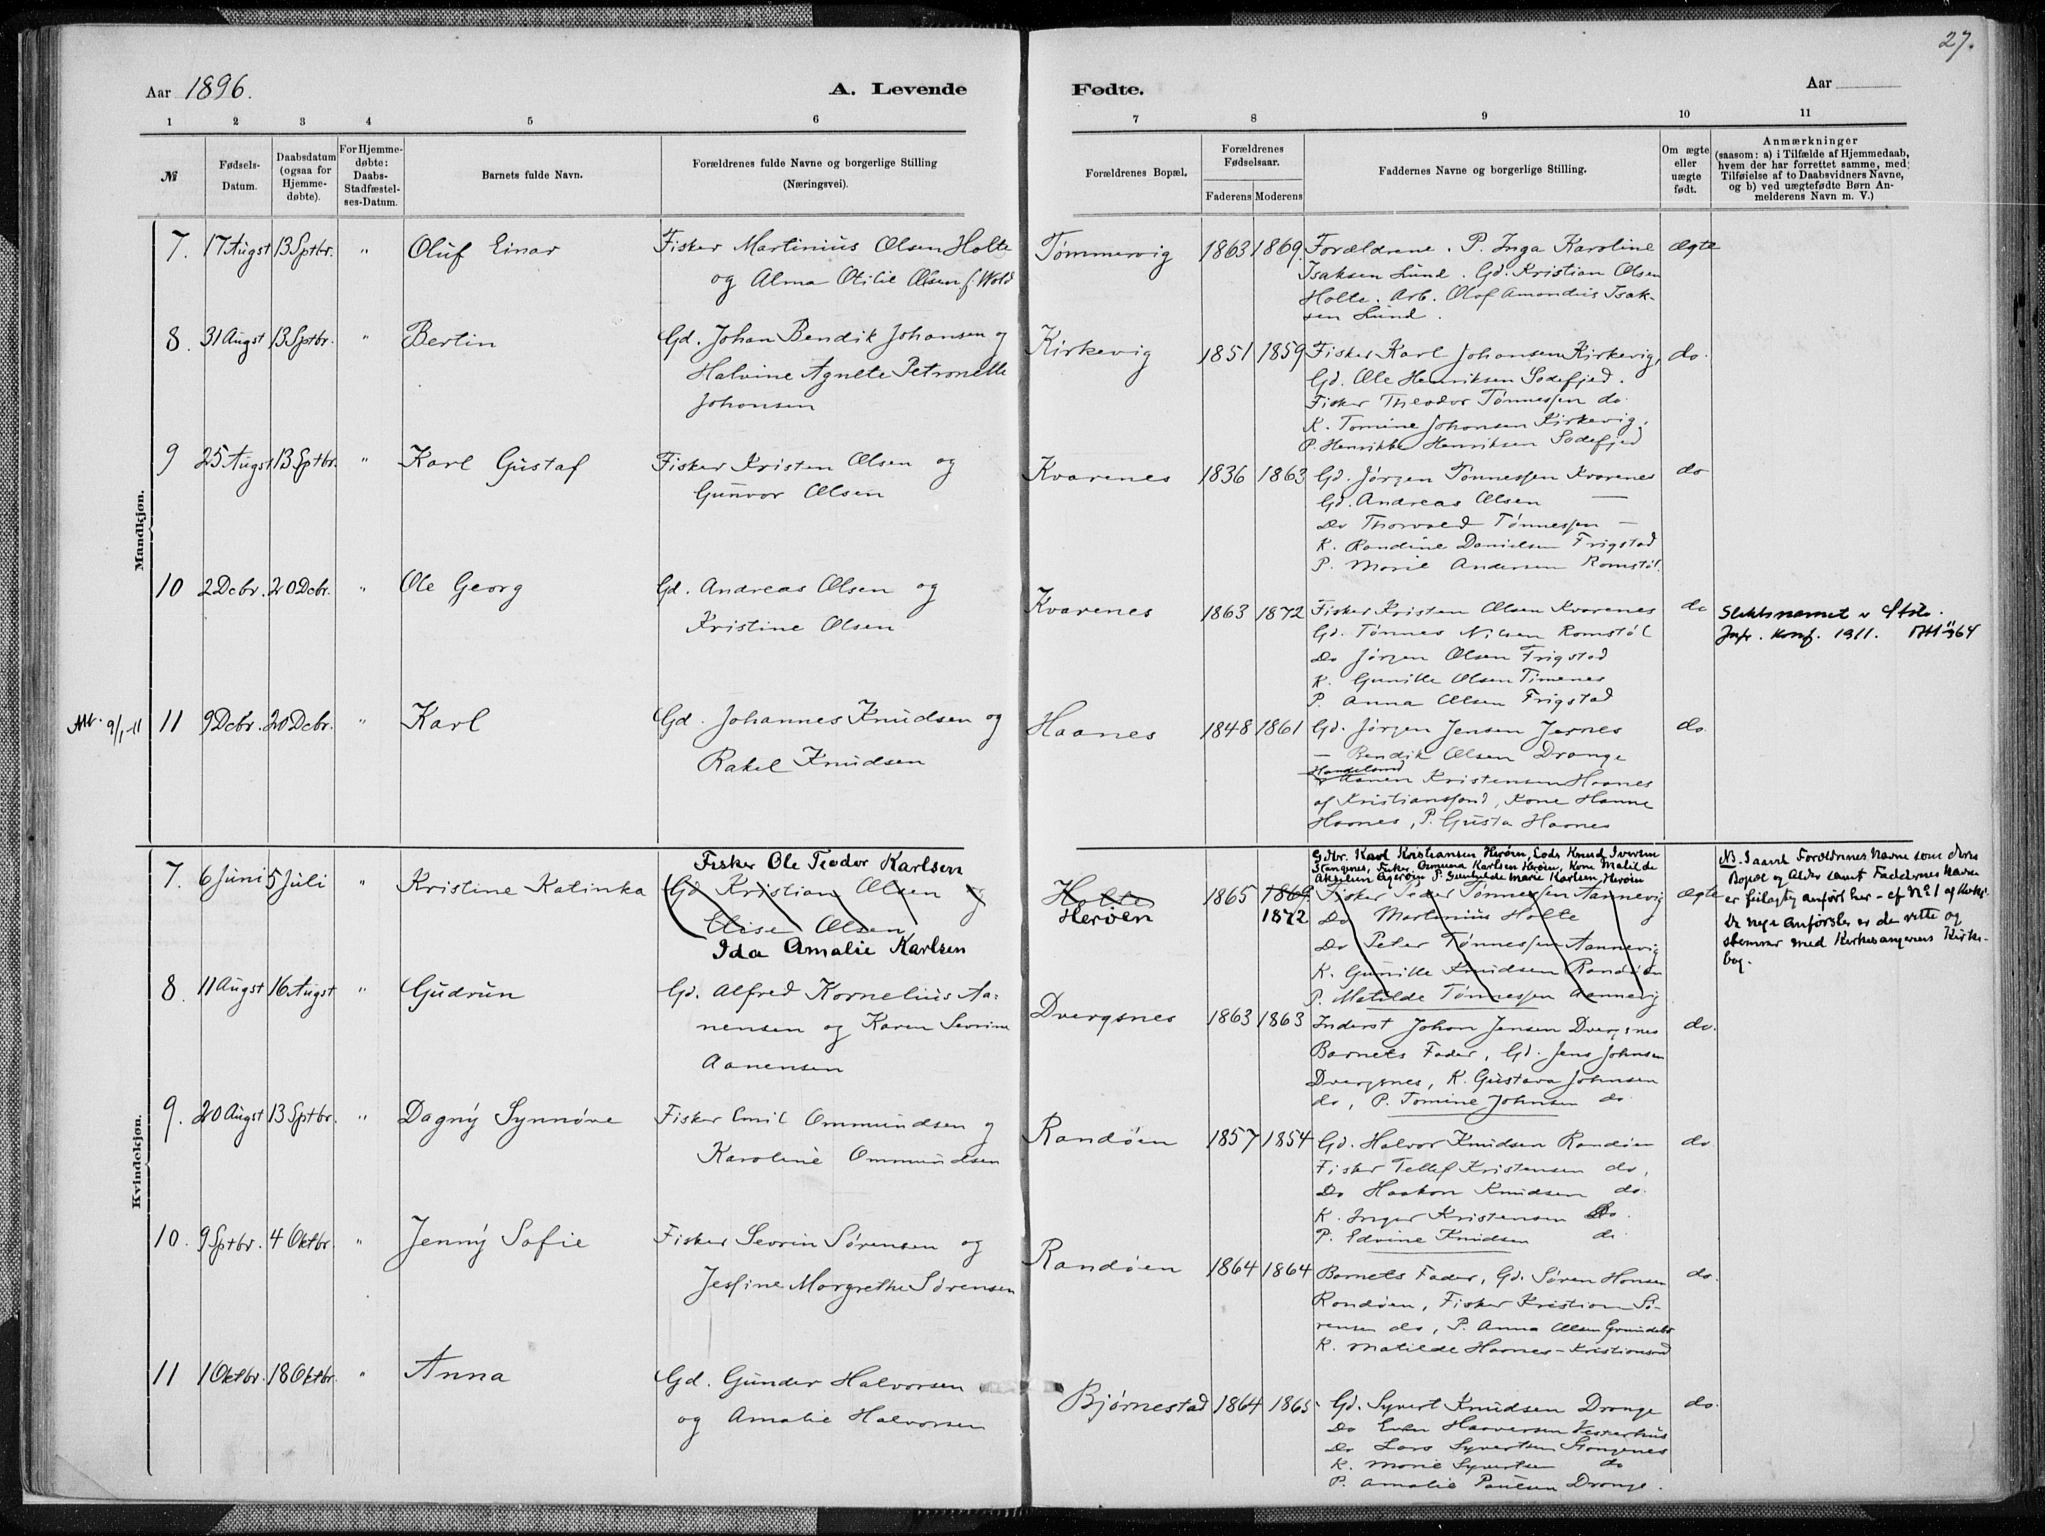 27.
Aar 1896.
A. Levende
Fødte.
Aar
1 2 3 4 5 6 7 8 9 10 11
№
Fødsels-
Datum.
Daabsdatum
(ogsaa for
Hjemme-
døbte).
For Hjemme-
døbte:
Daabs-
Stadfæstel-
ses-Datum.
Barnets fulde Navn.
Forældrenes fulde Navne og borgerlige Stilling
(Næringsvei).
Forældrenes Bopæl.
Forældrenes
Fødselsaar.
Faderens Moderens
Faddernes Navne og borgerlige Stilling.
Om ægte
eller
uægte
født.
Anmærkninger
(saasom: a) i Tilfælde af Hjemmedaab,
hvem der har forrettet samme, med
Tilføielse af to Daabsvidners Navne,
og b) ved uægtefødte Børn An-
melderens Navn m. V.)
Mandkjøn.
7. 17 Augst 13 Sptbr. " Oluf Einar
Fisker Martinius Olsen Holte
og Alma Otilie Olsen f. Wold
Tømmervig 1863 1869
Forældrene. P. Inga Karoline
Isaksen Lund. Gd. Kristian Olsen
Holte. Arb. Olof Amandus Isak-
sen Lund.
ægte
8. 31 Augst 13 Sptbr. " Bertin
Gd. Johan Bendik Johansen og
Halvine Agnete Petronelle
Johansen
Kirkevig 1851 1859
Fisker Karl Johansen Kirkevig,
Gd. Ole Henriksen Sodefjed.
Fisker Theodor Tønnessen do.
K. Tomine Johansen Kirkevig.
P. Henrikke Henriksen Sodefjed
do.
9 25 Augst 13 Sptbr. " Karl Gustaf
Fisker Kristen Olsen og
Gunvor Olsen
Kvarenes 1836 1863
Gd. Jørgen Tønnessen Kvarenes
Gd. Andreas Olsen —
Do Thorvald Tønnessen —
K. Randine Danielsen Frigstad
P. Marie Andersen Romstøl.
do
10 2 Dcbr. 20 Dcbr. " Ole Georg
Gd. Andreas Olsen og
Kristine Olsen
Kvarenes 1863 1872
Fisker Kristen Olsen Kvarenes
Gd. Tønnes Nilsen Romstøl
Do Jørgen Olsen Frigstad
K. Gunille Olsen Timenes
P. Anna Olsen Frigstad
do
Slektsnamnet
konf. 1911.
Att. 9/1-11
11 9 Dcbr. 20 Dcbr. " Karl
Gd. Johannes Knudsen og
Rakel Knudsen
Haanes 1848 1861
Gd. Jørgen Jensen Jernes
— Bendik Olsen Drange
Kristensen Haanes
af Kristianssand, Kone Hanne
Haanes, P. Gusta Haanes
do.
Kvindekjøn.
7. 6 Juni 5 Juli " Kristine Katinka
Fisker Ole Teodor Karlsen
Gd Kristian Olsen og
Elise Olsen
Ida Amalie Karlsen
Holte
Herøen
1865 1869
1872
Gdbr. Karl Kristiansen Herøen, Lods Knud Iversen
Stangenes, Fisker Osmund Karlsen Herøen, Kone Malilde
Akselsen Ugerøen P. Gunhilde Marie Karlsen Herøen
Fisker Peder Tønnessen Aannevig
Do Martinius Holte
Do Peter Tønnessen Aannevig
K. Gunille Knudsen Randøen
P. Matilde Tønnessen Aannevig
ægte
NB. Saavel Forældrenes Navne som deres
Bopæl og Alder samt Faddernes Navne
er feilagtig anført her – cf No 1 af
De nye Anførsler er de rette og
stemmer med Kirkesangerens Kirke-
bog.
8. 11 Augst 16 Augst " Gudrun
Gd. Alfred Kornelius Aa-
nensen og Karen Sevrine
Aanensen
Dvergsnes 1863 1863
Inderst Johan Jensen Dvergsnes
Barnets Fader, Gd. Jens Johnsen
Dvergsnes, K. Gustava Johnsen
do, P. Tomine Johnsen do.
do.
9. 20 Augst 13 Sptbr. " Dagny Synnøve
Fisker Emil Ommundsen og
Karoline Ommundsen
Randøen 1857 1854
Gd. Halvor Knudsen Randøen
Fisker Tellef Kristensen do,
Do Haakon Knudsen do.
K. Inger Kristensen do.
P. Edvine Knudsen do
do
10. 9 Sptbr. 4 Oktbr. " Jenny Sofie
Fisker Sevrin Sørensen og
Jesfine Margrethe Sørensen
Randøen 1864 1864
Barnets Fader, Gd. Søren Hansen
Randøen, Fisker Kristian Sø-
rensen do, P. Anna Olsen
K. Matilde Haanes – Kristiansand
do.
11 1 Oktbr. 18 Oktbr. " Anna
Gd. Gunder Halvorsen
og Amalie Halvorsen
Bjørnestad 1864 1865
Gd. Syvert Knudsen Drange
Do Even Haaversen Vesterhus
Do Lars Syvertsen Stangenes
K. Marie Syvertsen do
P. Amalie Paulsen Drange.
do.